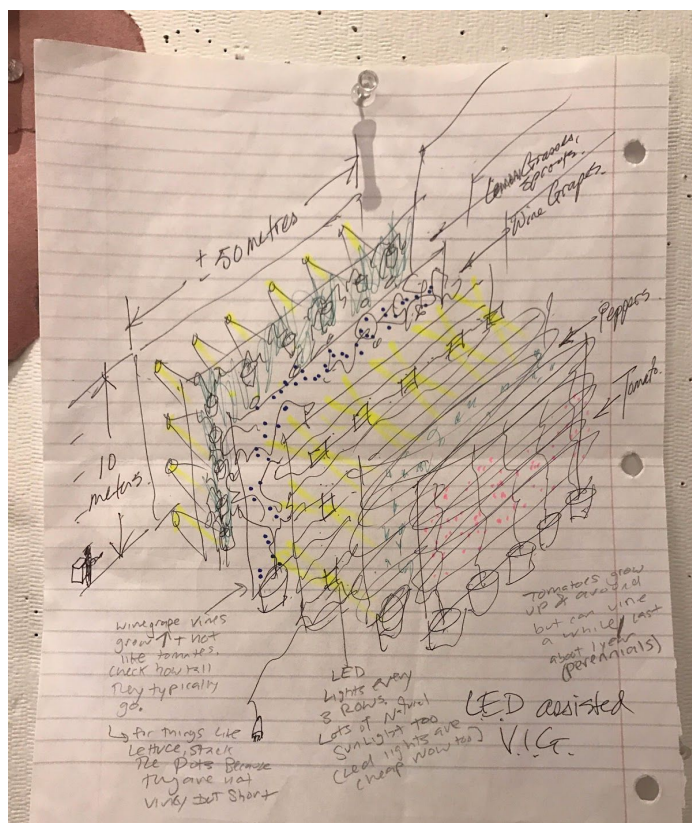 ± 50 metres
Lemon Grasses,
Sprouts.
Wine Grapes.
Peppers
Tomato.
10
meters.
winegrape vines
grow ↑ + not
like tomatoes.
check how tall
They typically
go.
↳ for things like
Lettuce, stack
The Pots Because
they are not
viney but short
LED
Lights every
3 Rows.
Lots of Natural
Sunlight too
(Led lights are
cheap now too)
Tomatoes grow
up & around
but can vine
a while / last
about 1 year
(perennials)
LED assisted
V.I.G.